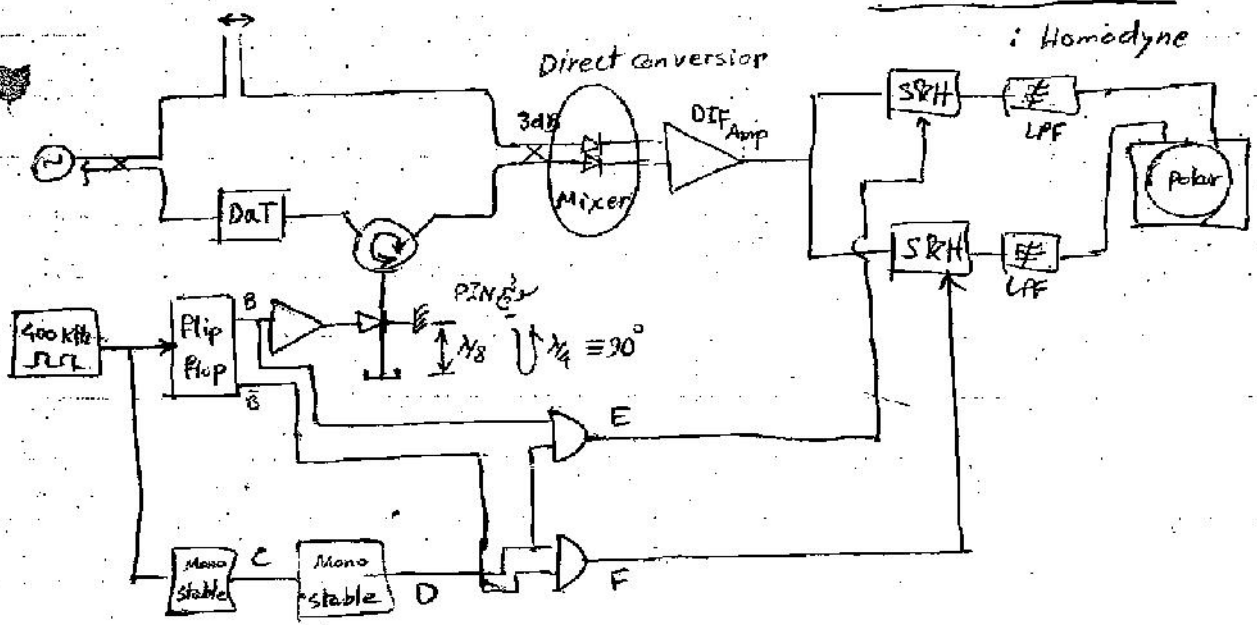 : Homodyne
Direct conversion
3dB
Mixer
DIF Amp
S&H
LPF
Polar
S&H
LPF
DaT
PIN
400 kHz
Flip Flop
B
B̄
λ/8
λ/4 ≡ 90°
E
F
Mono stable
C
Mono stable
D